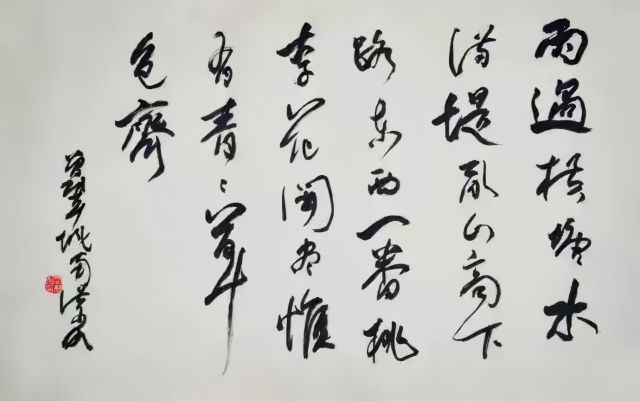 雨過橫塘水
滿堤亂山高下
路東西一番桃
李花開盡惟
有青々草
色齊
曾鞏城南